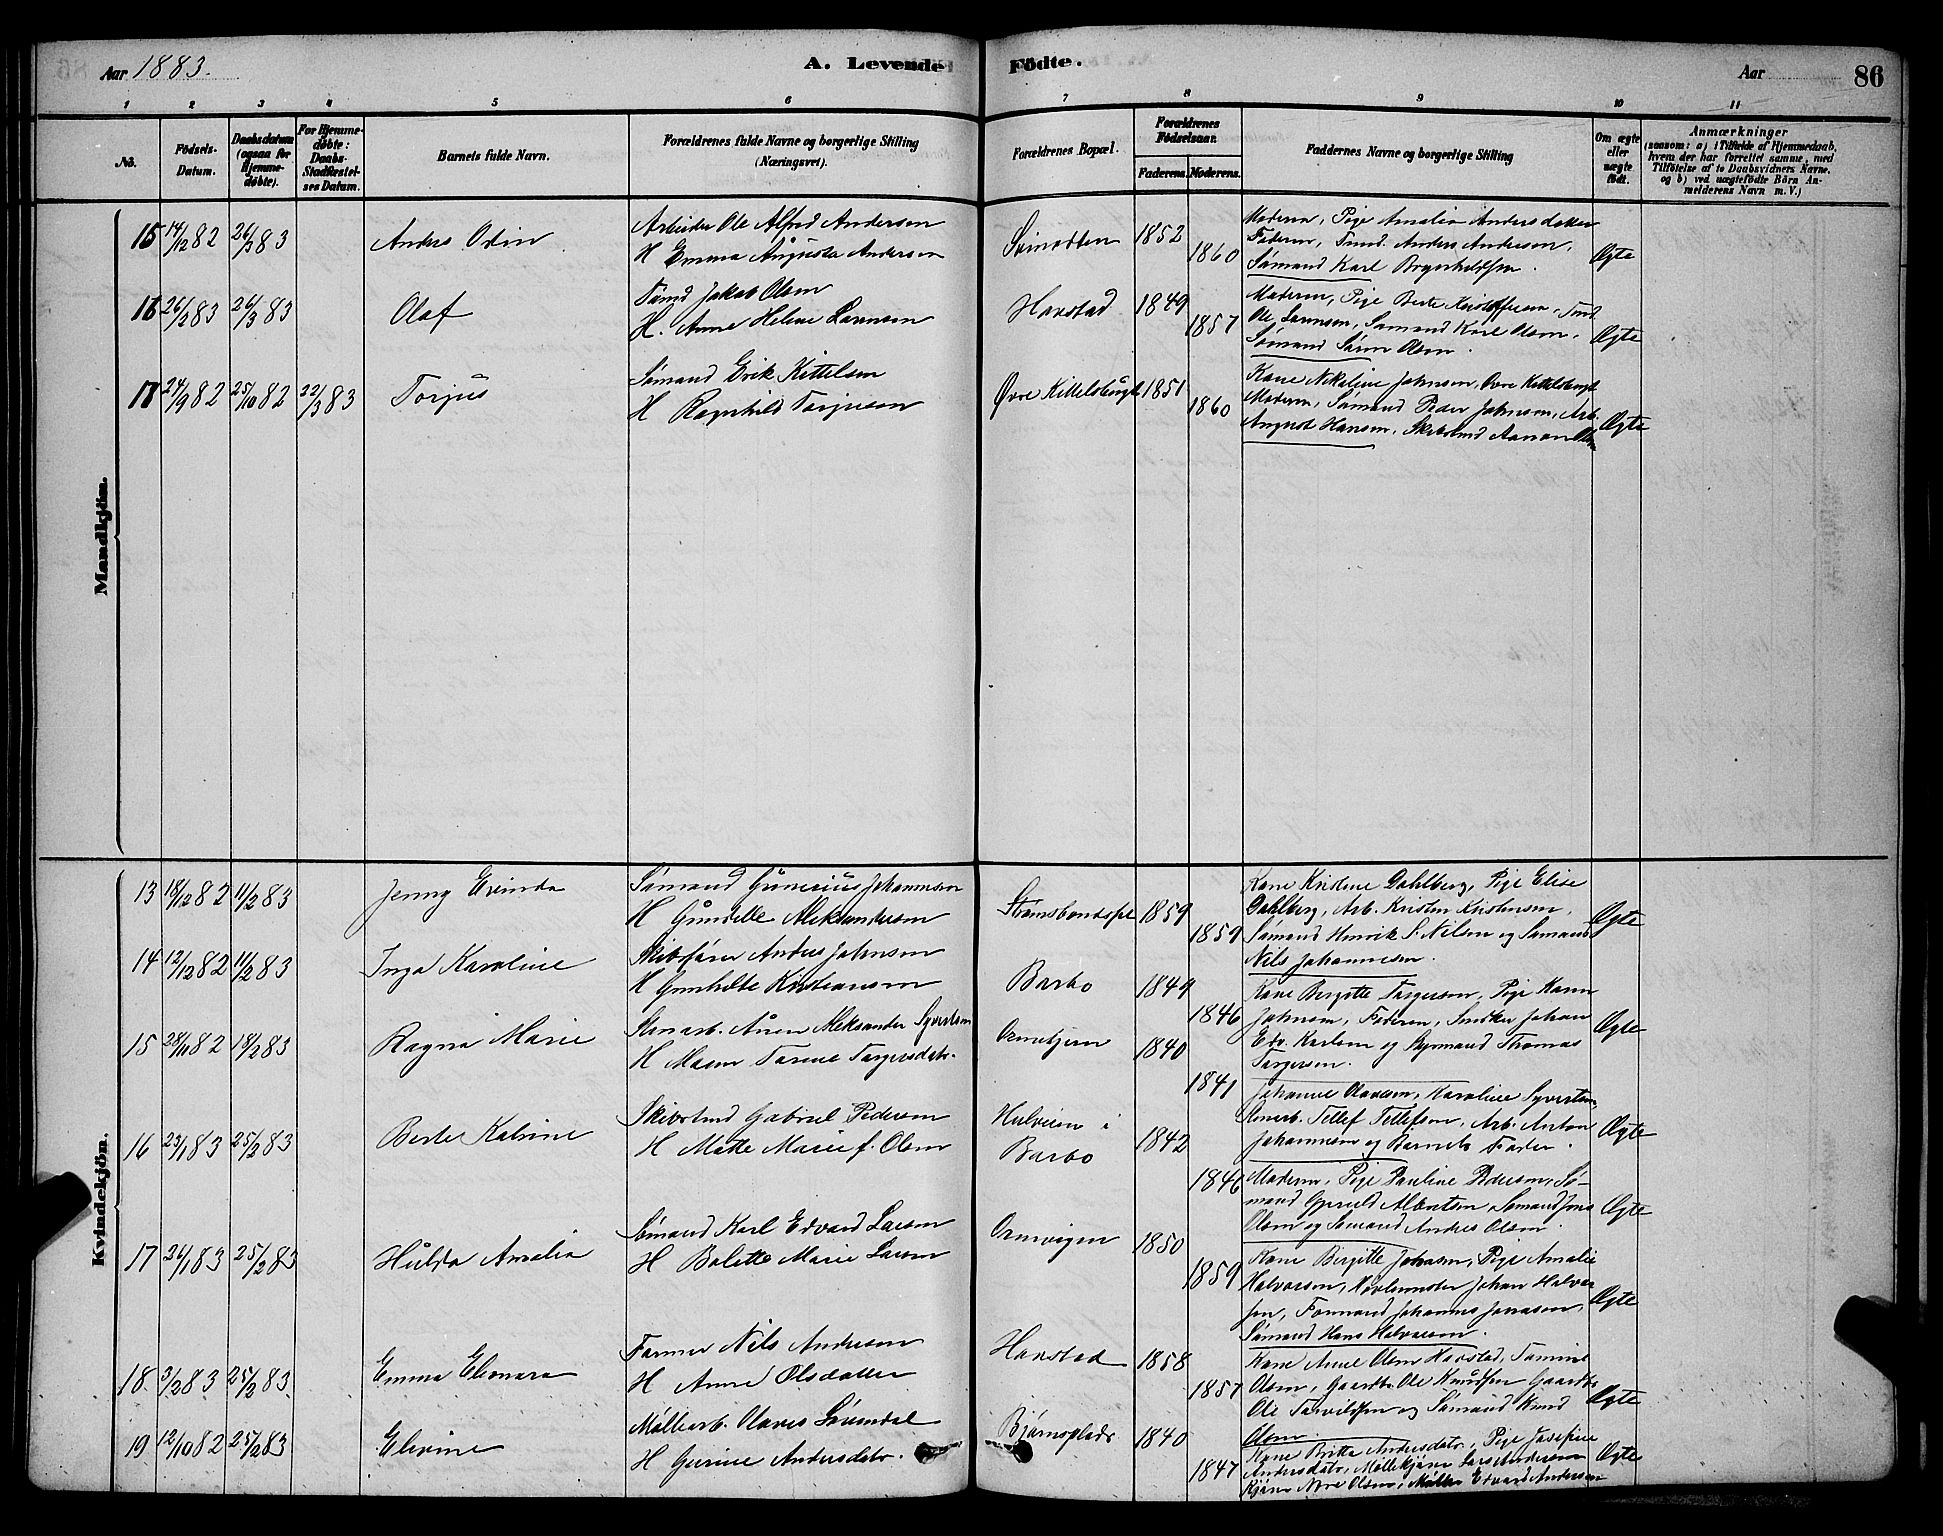 Aar 1883.
A. Levende Födte.
Aar
86
1 2 3 4 5 6 7 8 9 10 11
No.
Födsels-Datum.
Daabsdatum (ogsaa for Hjemme-döbte).
For Hjemme-döbte: Daabs-Stadfæstel-ses Datum.
Barnets fulde Navn.
Forældrenes fulde Navne og borgerlige Stilling (Næringsvei).
Forældrenes Bopæl.
Forældrenes Födselsaar.
Faderens. Moderens.
Faddernes Navne og borgerlige Stilling
Om ægte eller uægte födt.
Anmærkninger
(saasom: a) i Tilfælde af Hjemmedaab,
hvem der har forrettet samme, med
Tilföielse af to Daabsvidners Navne.
og b) ved uægtefödte Börn An-
melderens Navn m. V.)
Mandkjön.
15 14/12 82 26/3 83 Anders Odin
Arbeider Ole Alfred Anderson
H Emma Augusta Anderson
1852
1860
Moderen, Pige Amalia Andersdatter
Faderen, Tmd. Anders Anderson,
Sømand Karl
Ægte
16 26/2 83 26/3 83 Olaf
Tømd Jakob Olsen
H. Anne Helene Larensen
Havstad 1849
1857
Moderen, Pige Berte Kristoffersen, Tmd
Ole Larensen, Sømand Karl Olsen,
Sømand Søren Olsen.
Ægte
17 24/9 82 25/10 82 22/3 83 Torjus
Sømand Erik Kittelsen
H Ragnhild Torjusen
Øvre Kittelsbugt 1851
1860
Kone Nikoline Johnsen, Øvre Kittelsbugt
Moderen, Sømand Peder Johnsen, Arb.
August Hansen, Skibstmd Aanon Olsen
Ægte
Kvindekjön.
13 18/12 82 11/2 83 Jenny Evinda
Sømand Gunerius Johannesen
H Gundelle Aleksandersen
1859
1859
Kone Kristine Dahlberg, Pige Elise
Dahlberg, Arb. Kristen Kristensen,
Sømand Henrik S. Nilsen og Sømand
Nils Johannesen.
Ægte
14 12/12 82 11/2 83 Inga Karoline
Skibsfører Anders Johnsen
H Gunhilde Kristiansen
Barbo 1849
1846
Kone Birgitte Torgersen, Pige Karen
Johnsen, Faderen, Snedker Johan
Edv. Karlsen og Styrmand Thomas
Torgersen.
Ægte
15 28/11 82 18/2 83 Ragna Marie
Stenarb. Auen Aleksander Syvertsen
H Maren Tarine Torgersdatr.
1840
1841
Johanne Olavesen, Karoline Syvertsen,
Stenarb. Tellef Tellefsen, Arb. Anton
Johannesen og Barnets Fader.
Ægte
16 23/1 83 25/2 83 Berte Katrine
Skibstmd Gabriel Pedersen
H Mette Marie f. Olsen
Hulveien i
Barbo
1842
1846
Moderen, Pige Pauline Pedersen, Sø-
mand Gjeruld Albertsen, Sømand Jens
Olsen og Sømand Andres Olsen.
Ægte
17 26/1 83 25/2 83 Hulda Amalia
Sømand Karl Edvard Larsen
H Bolette Marie Larsen
Ormvigen 1850
1859
Kone Birgitte Johnsen, Pige Amalie
Halvorsen, Høvlemester Johan Halvor
sen, Formand Johannes Jonassen,
Sømand Hans Halvorsen.
Ægte
18. 3/2 83 25/2 83. Emma Eleonora
Farmer Nils Andersen
H Anne Olsdatter
Havstad 1858
1857
Kone Anne Olsen Havstad, Tomine
Olsen, Gaardbr. Ole Knudsen Gaardbr.
Ole Tarvildsen og Sømand Knud
Olsen.
Ægte
19 12/10 82 25/2 83 Elevine
Møllearb. Olaves Løvendal
H Gurine Andersdatr.
Bjørnsplads 1840
1847
Kone Britta Andersdatr., Pige Josefine
Andersdatr., Møllekjører Lars Andersen
Kjører Nere Olsen, Møller Edvard Andersen
Ægte